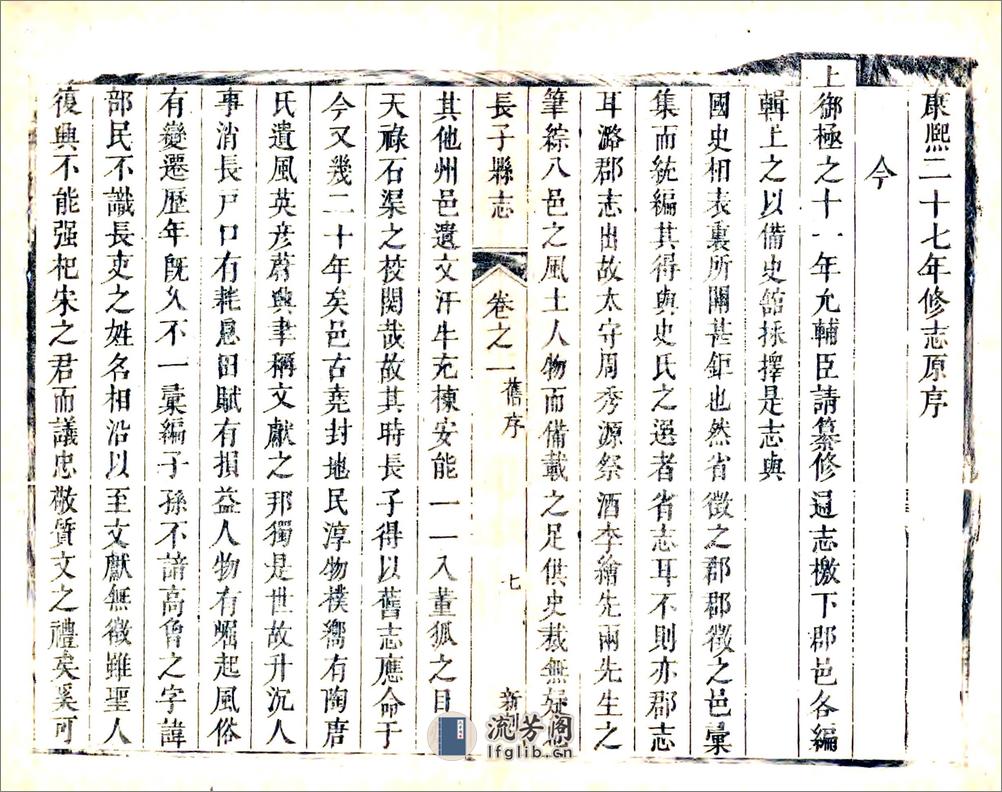 康熙二十七年修志原序
今
上御極之十一年允輔臣請纂修通志檄下郡邑各編
輯上之以備史館採擇是志與
國史相表裏所關甚鉅也然省徵之郡郡徵之邑彙
集而統編其得與史氏之選者省志耳不則亦郡志
耳潞郡志出故太守周秀源祭酒李繪先兩先生之
筆綜八邑之風土人物而備載之足供史裁無疑
長子縣志 卷之一 舊序 七 新刻
其他州邑遺文汗牛充棟安能一一入董狐之目
天祿石渠之校閱哉故其時長子得以舊志應命于
今又幾二十年矣邑古堯封地民淳物樸嚮有陶唐
氏遺風英彥蔚興聿稱文獻之邦獨是世故升沉人
事消長戸口有耗息田賦有損益人物有崛起風俗
有變遷歷年既久不一彙編子孫不諳高曾之字諱
部民不識長吏之姓名相沿以至文獻無徵雖聖人
復興不能强杞宋之君而議忠敬質文之禮矣奚可
流芳阁
lfglib.cn